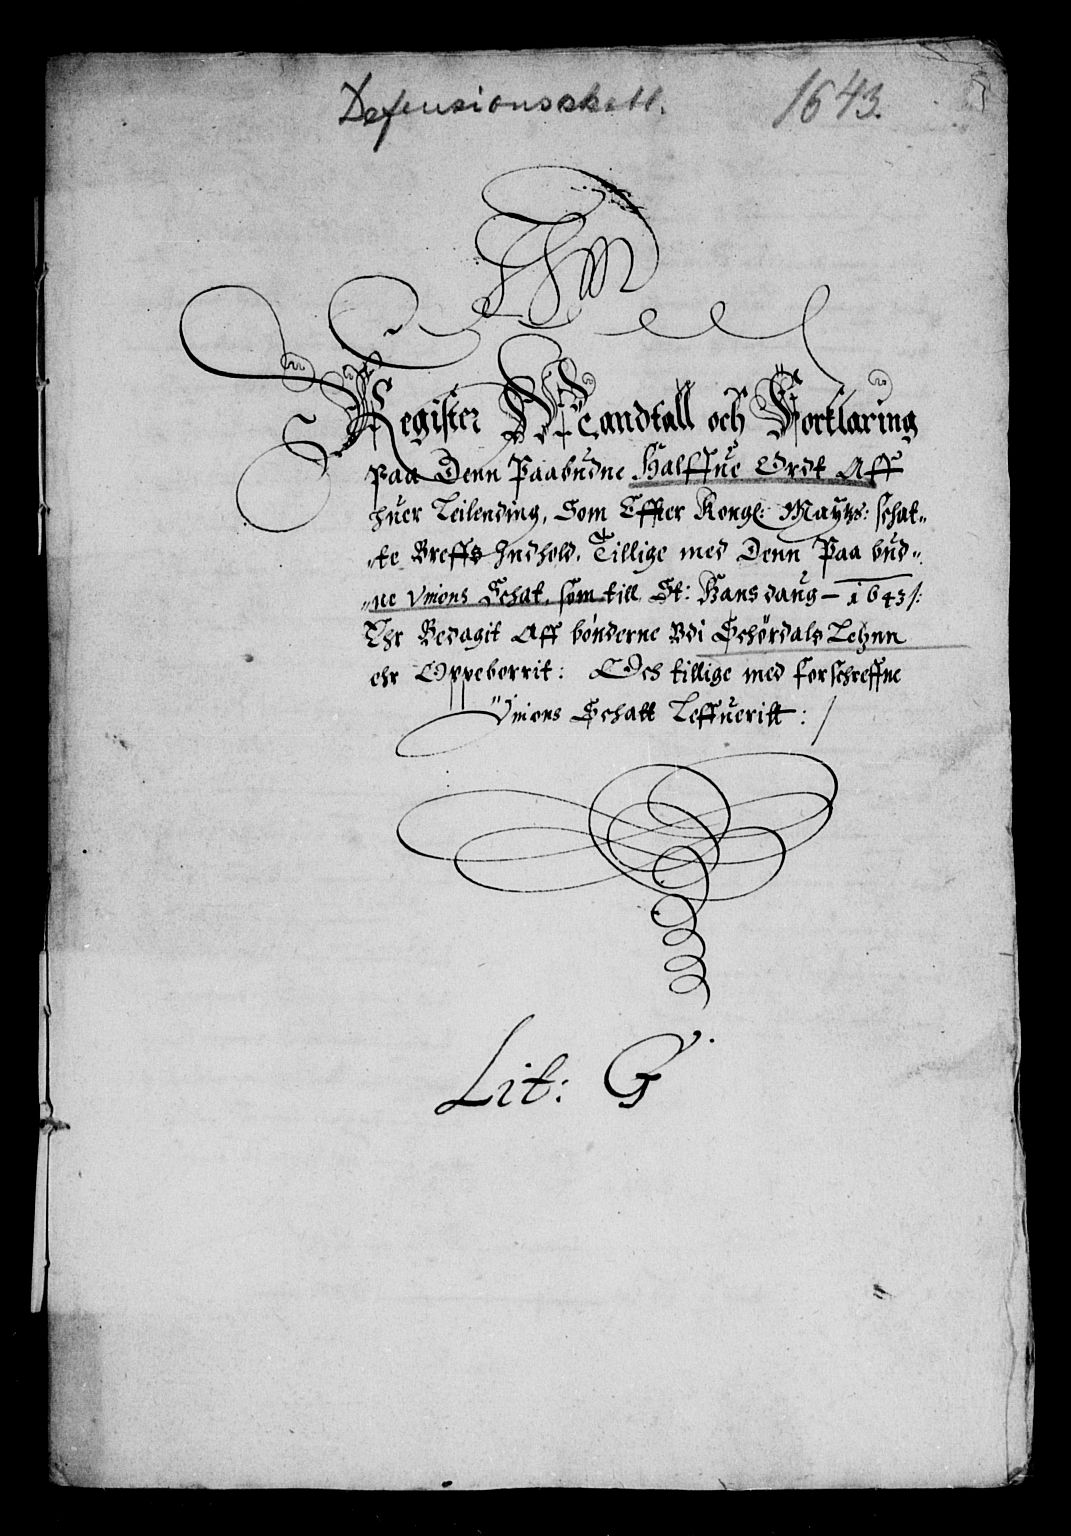 Defensionsskatt. 1643.
Register Mandtall och Forklaring
paa Denn Paabudne Halffue Ordt Aff
huer Leilending, Som Effter Kongl: Maytts: schat-
-te Breffs Indhold. Tillige med Denn Paa bud-
-ne Vnions Schat, som till St: Hans daug – 1643/:
Ehr Bedagit Aff bønderne Vdi Schørdals Lehnn
ehr Oppeborrit: Och tillige med forschreffne
Vnions Schatt Leffueritt:/
Lit: G